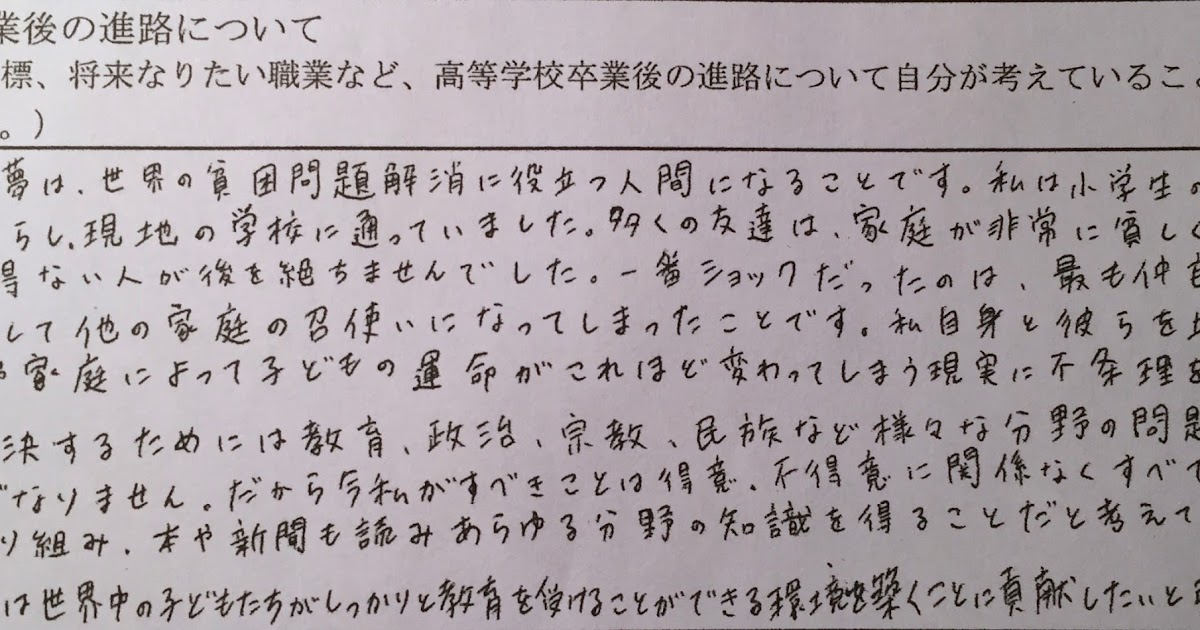 業後の進路について
標、将来なりたい職業など、高等学校卒業後の進路について自分が考えているこ
。）
夢は、世界の貧困問題解消に役立つ人間になることです。私は小学生
らし、現地の学校に通っていました。多くの友達は、家庭が非常に貧しく
得ない人が後を絶ちませんでした。一番ショックだったのは、最も仲
して他の家庭の召使いになってしまったことです。私自身と彼らを
家庭によって子どもの運命がこれほど変わってしまう現実に不条理を
決するためには教育、政治、宗教、民族など様々な分野の問題
なりません。だから今私がすべきことは得意、不得意に関係なくすべて
り組み、本や新聞も読みあらゆる分野の知識を得ることだと考えて
は世界中の子どもたちがしっかりと教育を受けることができる環境を築くことに貢献したいと